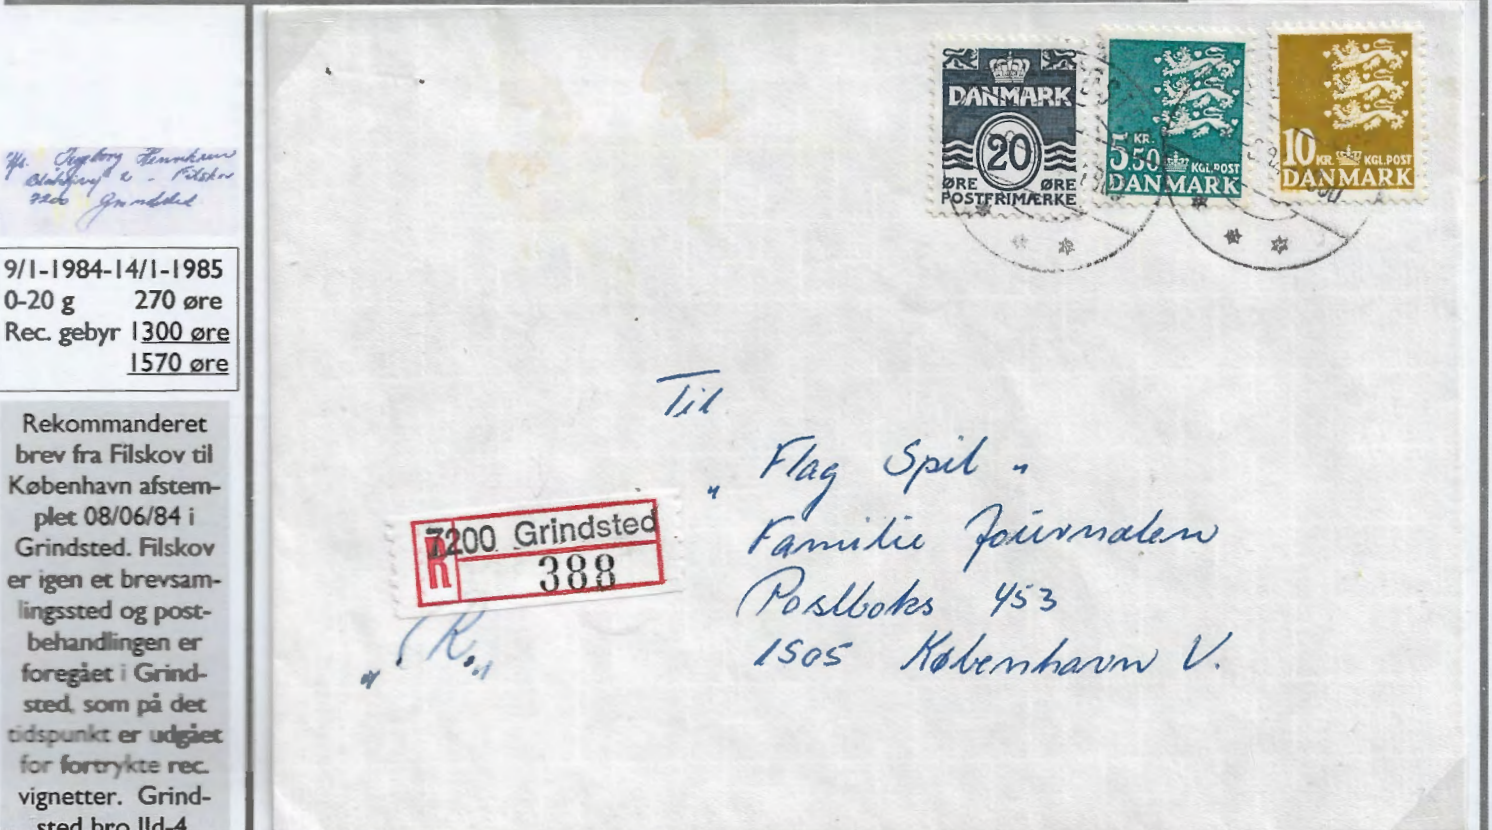 Ingeborg Hennksen
2 - Filskov
7200 Grindsted
9/1-1984-14/1-1985
0-20 g 270 øre
Rec. gebyr 1300 øre
1570 øre
Rekommanderet
brev fra Filskov til
København afstem-
plet 08/06/84 i
Grindsted. Filskov
er igen et brevsam-
lingssted og post-
behandlingen er
foregået i Grind-
sted, som på det
tidspunkt er udgået
for fortrykte rec.
vignetter. Grind-
sted bro IId-4
DANMARK
20
ØRE ØRE
POSTFRIMÆRKE
5 KR. 50 KGL.POST
DANMARK
10 KR. KGL.POST
DANMARK
Til
"Flag Spil"
Familie Journalen
Postboks 453
1505 København V.
7200 Grindsted
R 388
"R."